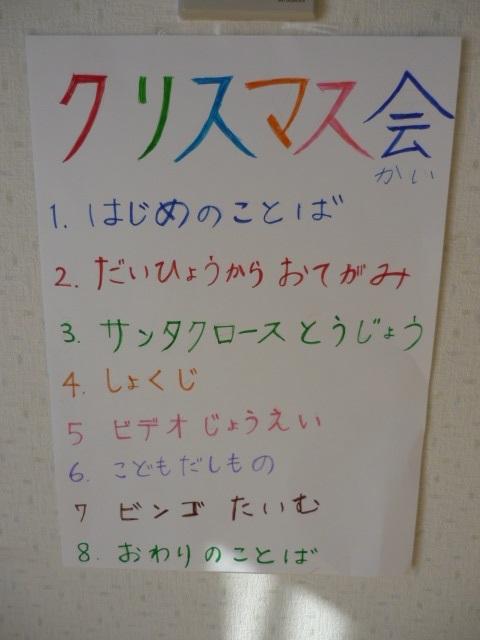 クリスマス会
かい
1. はじめのことば
2. だいひょうから おてがみ
3. サンタクロース とうじょう
4. しょくじ
5 ビデオ じょうえい
6. こどもだしもの
7 ビンゴ たいむ
8. おわりのことば